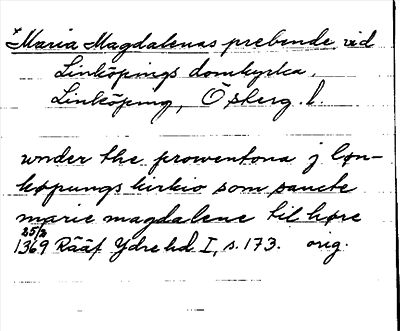 *Maria Magdalenas prebende vid
Linköpings domkyrka,
Linköping, Österg. l.
wnder the prowentona j løn-
køpungs kirkio som sancte
marie magdalene til høre
25/2
1369 Rääf Ydre hd I, s. 173. orig.